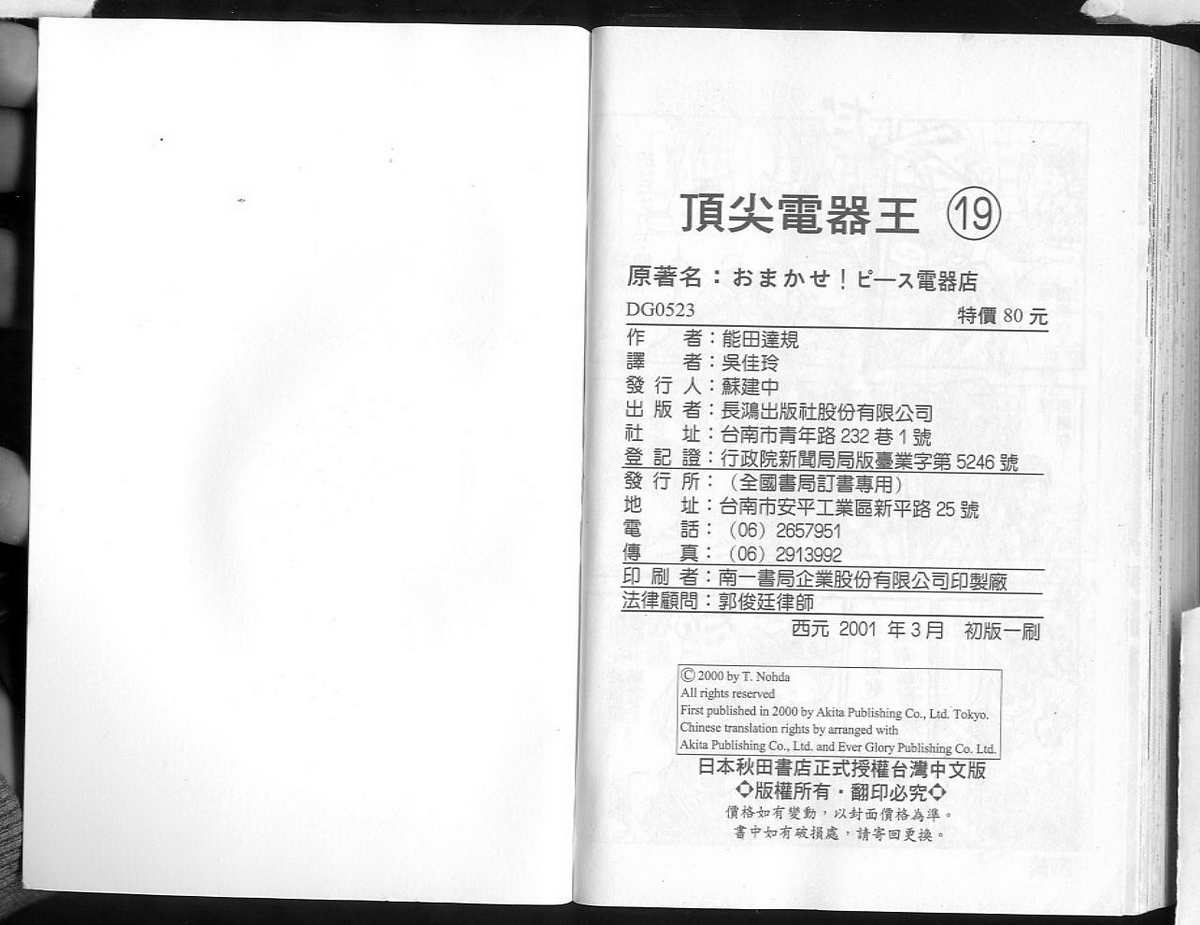 頂尖電器王 ⑲
原著名：おまかせ！ピース電器店
DG0523 特價 80 元
作者：能田達規
譯者：吳佳玲
發行人：蘇建中
出版者：長鴻出版社股份有限公司
社址：台南市青年路 232 巷 1 號
登記證：行政院新聞局局版臺業字第 5246 號
發行所：（全國書局訂書專用）
地址：台南市安平工業區新平路 25 號
電話：（06）2657951
傳真：（06）2913992
印刷者：南一書局企業股份有限公司印製廠
法律顧問：郭俊廷律師
西元 2001 年 3 月 初版一刷
© 2000 by T. Nohda
All rights reserved
First published in 2000 by Akita Publishing Co., Ltd. Tokyo.
Chinese translation rights by arranged with
Akita Publishing Co., Ltd. and Ever Glory Publishing Co. Ltd.
日本秋田書店正式授權台灣中文版
◇版權所有・翻印必究◇
價格如有變動，以封面價格為準。
書中如有破損處，請寄回更換。